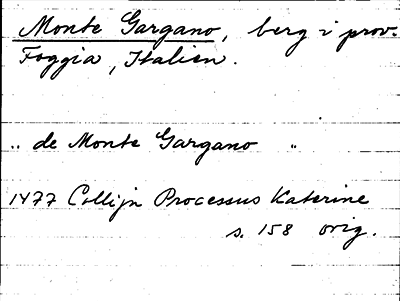 Monte Gargano, berg i prov.
Foggia, Italien.
„ de Monte Gargano „
1477 Collijn Processus Katerine
s. 158 orig.